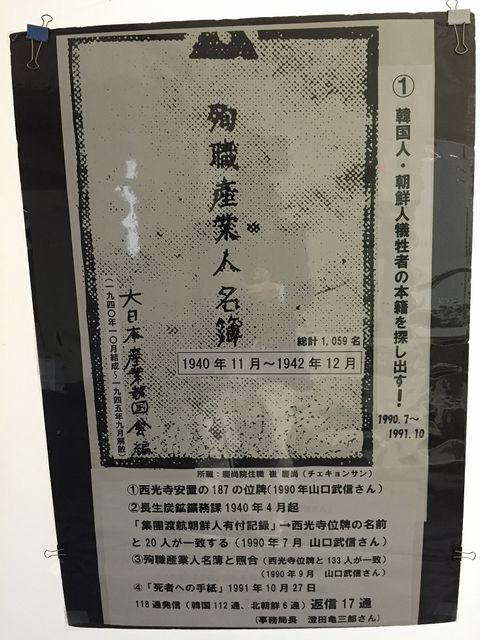 ① 韓国人・朝鮮人犠牲者の本籍を探し出す！
1990.7～
1991.10
殉職産業人名簿
大日本産業報国会編
(一九四〇年一〇月結成～一九四五年九月解散)
総計 1,059 名
1940 年 11 月～1942 年 12 月
所蔵：慶尚院住職 崔 慶尚 (チェキョンサン)
①西光寺安置の 187 の位牌(1990 年山口武信さん)
②長生炭鉱鑛務課 1940 年 4 月起
「集團渡航朝鮮人有付記録」→西光寺位牌の名前
と 20 人が一致する (1990 年 7 月 山口武信さん)
③殉職産業人名簿と照合 (西光寺位牌と 133 人が一致)
(1990 年 9 月 山口武信さん)
④「死者への手紙」1991 年 10 月 27 日
118 通発信 (韓国 112 通、北朝鮮 6 通) 返信 17 通
(事務局長 澄田亀三郎さん)